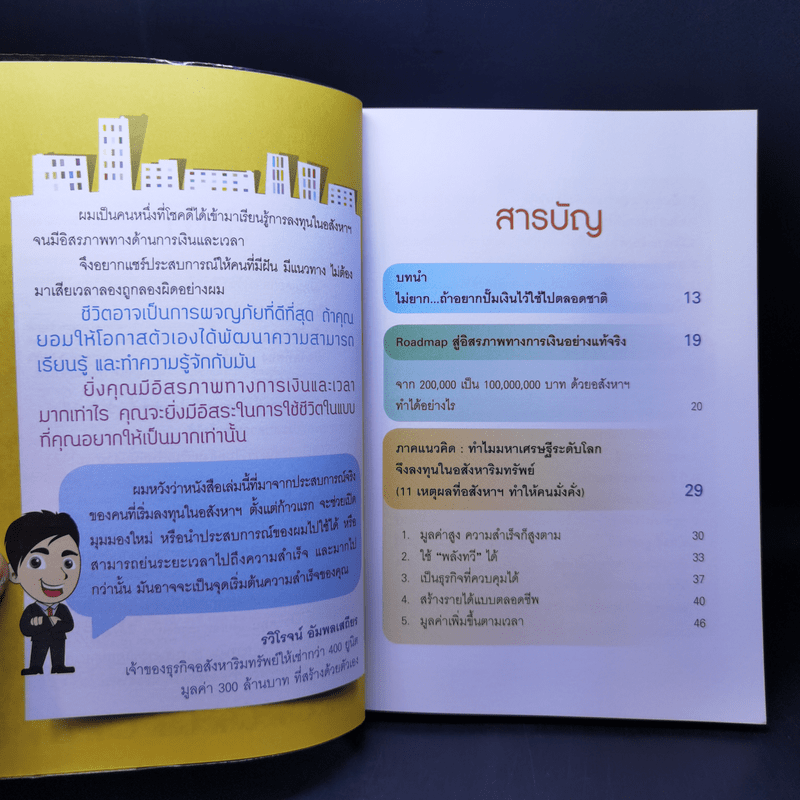 ผมเป็นคนหนึ่งที่โชคดีได้เข้ามาเรียนรู้การลงทุนในอสังหาฯ
จนมีอิสรภาพทางด้านการเงินและเวลา
จึงอยากแชร์ประสบการณ์ให้คนที่มีฝัน มีแนวทาง ไม่ต้อง
มาเสียเวลาลองถูกลองผิดอย่างผม
ชีวิตอาจเป็นการผจญภัยที่ดีที่สุด ถ้าคุณ
ยอมให้โอกาสตัวเองได้พัฒนาความสามารถ
เรียนรู้ และทำความรู้จักกับมัน
ยิ่งคุณมีอิสรภาพทางการเงินและเวลา
มากเท่าไร คุณจะยิ่งมีอิสระในการใช้ชีวิตในแบบ
ที่คุณอยากให้เป็นมากเท่านั้น
ผมหวังว่าหนังสือเล่มนี้ที่มาจากประสบการณ์จริง
ของคนที่เริ่มลงทุนในอสังหาฯ ตั้งแต่ก้าวแรก จะช่วยเปิด
มุมมองใหม่ หรือนำประสบการณ์ของผมไปใช้ได้ หรือ
สามารถย่นระยะเวลาไปถึงความสำเร็จ และมากไป
กว่านั้น มันอาจจะเป็นจุดเริ่มต้นความสำเร็จของคุณ
รวิโรจน์ อัมพลเสถียร
เจ้าของธุรกิจอสังหาริมทรัพย์ให้เช่ากว่า 400 ยูนิต
มูลค่า 300 ล้านบาท ที่สร้างด้วยตัวเอง
สารบัญ
บทนำ
ไม่ยาก...ถ้าอยากปั๊มเงินไว้ใช้ไปตลอดชาติ 13
Roadmap สู่อิสรภาพทางการเงินอย่างแท้จริง 19
จาก 200,000 เป็น 100,000,000 บาท ด้วยอสังหาฯ
ทำได้อย่างไร 20
ภาคแนวคิด : ทำไมมหาเศรษฐีระดับโลก
จึงลงทุนในอสังหาริมทรัพย์
(11 เหตุผลที่อสังหาฯ ทำให้คนมั่งคั่ง) 29
1. มูลค่าสูง ความสำเร็จก็สูงตาม 30
2. ใช้ “พลังทวี” ได้ 33
3. เป็นธุรกิจที่ควบคุมได้ 37
4. สร้างรายได้แบบตลอดชีพ 40
5. มูลค่าเพิ่มขึ้นตามเวลา 46